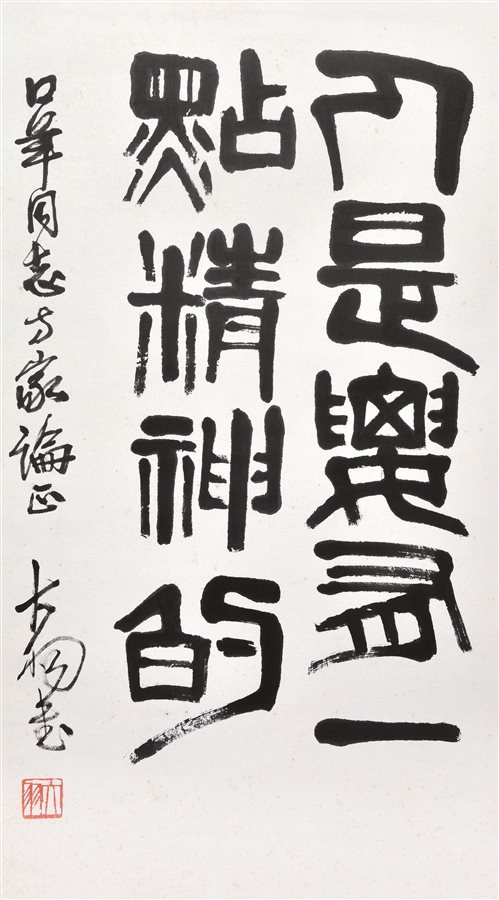 人是要有一
點精神的
同志方家論正
大羽書
大羽